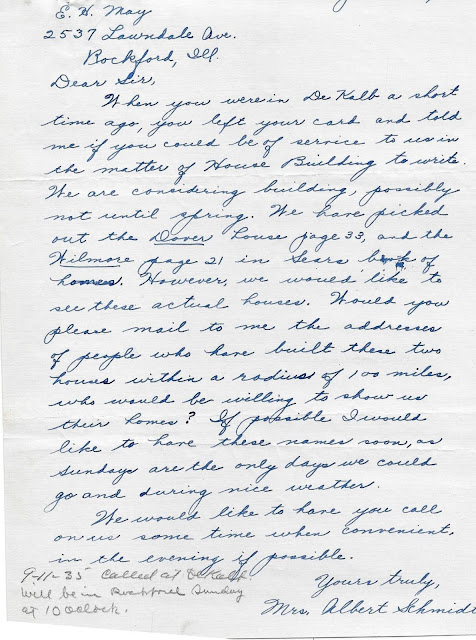 E. H. May
2537 Lawndale Ave.
Rockford, Ill.
Dear Sir,
When you were in De Kalb a short
time ago, you left your card and told
me if you could be of service to us in
the matter of House Building to write.
We are considering building, possibly
not until spring. We have picked
out the Dover house page 33, and the
Wilmore page 21 in Sears book of
homes. However, we would like to
see these actual houses. Would you
please mail to me the addresses
of people who have built these two
houses within a radius of 100 miles,
who would be willing to show us
their homes? If possible I would
like to have these names soon, as
Sundays are the only days we could
go and during nice weather.
We would like to have you call
on us some time when convenient,
in the evening if possible.
Yours truly,
Mrs. Albert Schmidt
9-11-35 Called at DeKalb
will be in Rockford Sunday
at 10 Oclock.